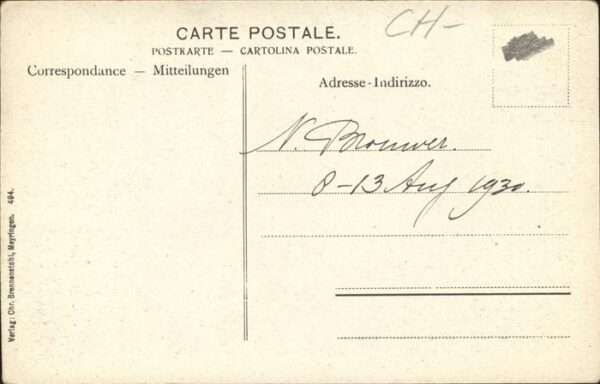 CH-
CARTE POSTALE.
POSTKARTE — CARTOLINA POSTALE.
Correspondance — Mitteilungen
Adresse-Indirizzo.
N. Brouwer.
8-13 Aug 1930.
Verlag: Chr. Brennenstuhl, Meyringen. 494.